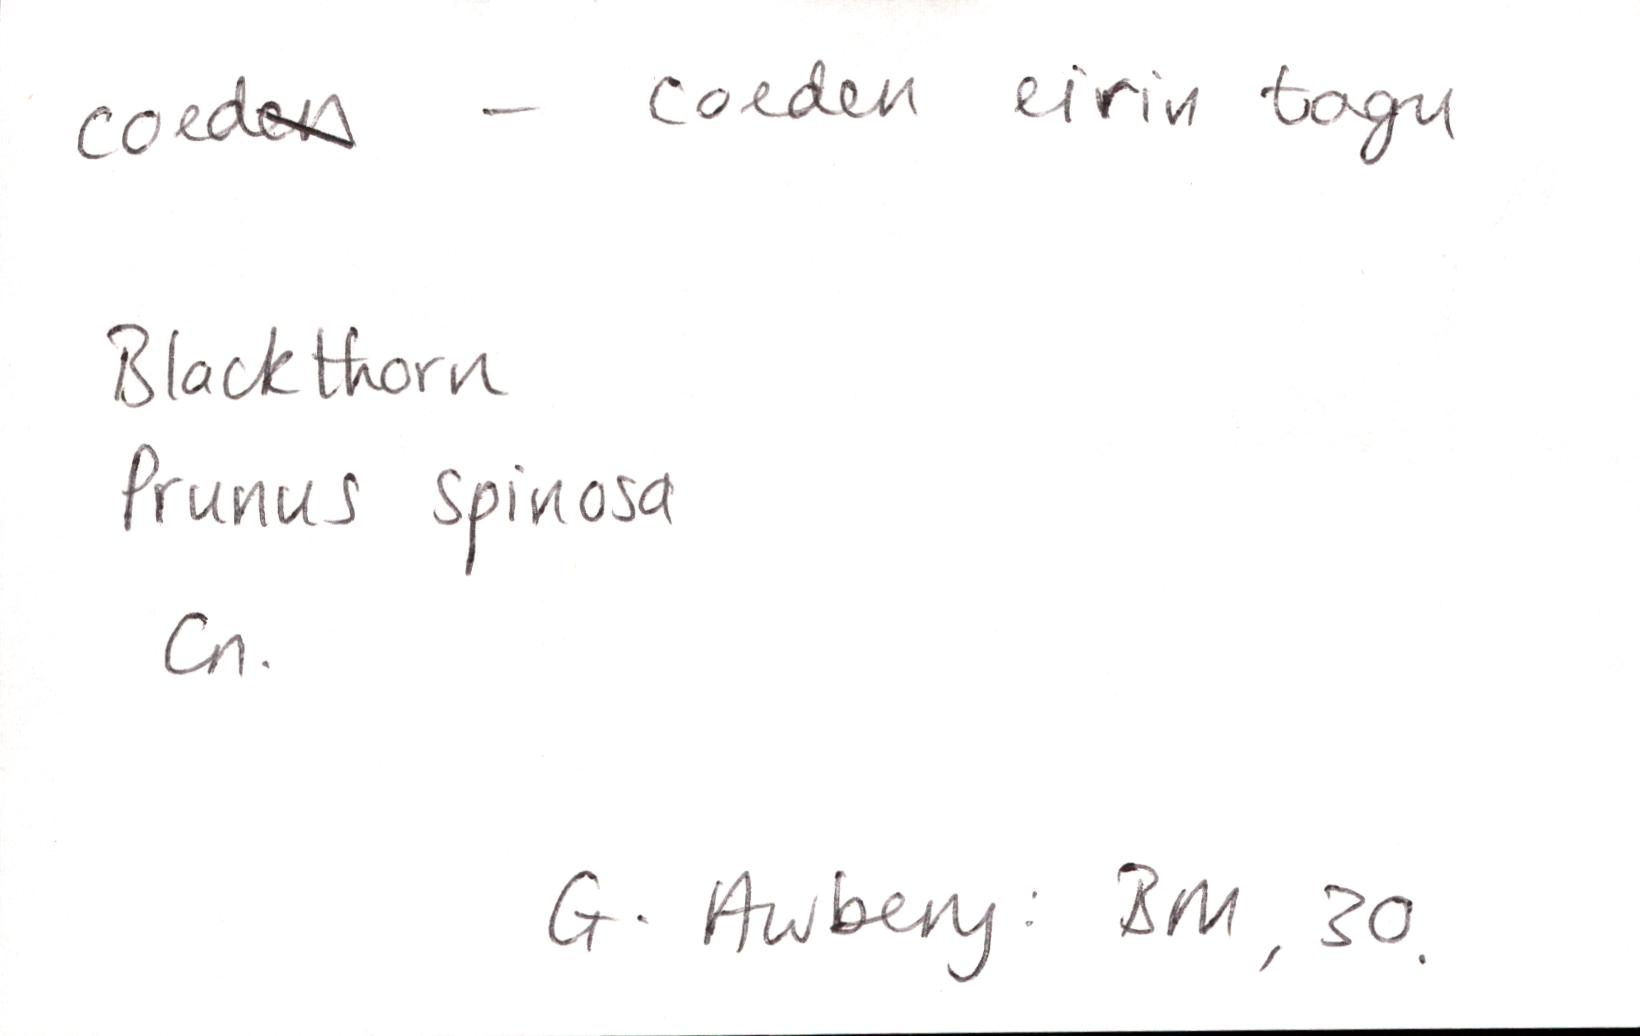 coed - coeden eirin tagu
Blackthorn
Prunus spinosa
Cn.
G. Awbery: BM, 30.